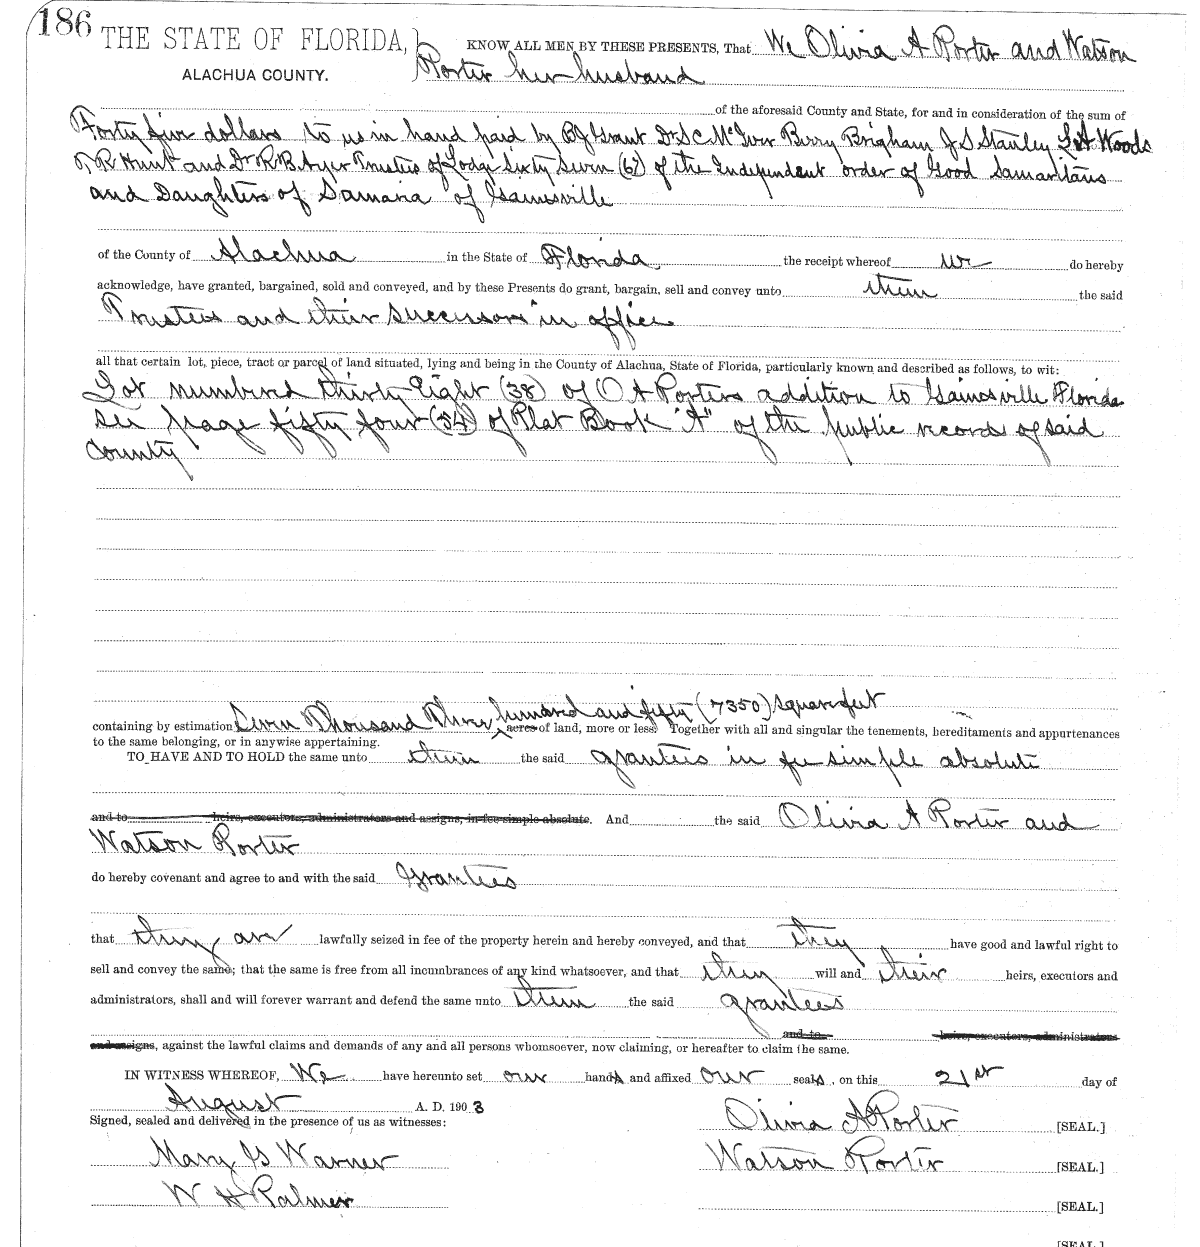 186
THE STATE OF FLORIDA, KNOW ALL MEN BY THESE PRESENTS, That We Olivia A Porter and Watson
ALACHUA COUNTY. Porter her husband
of the aforesaid County and State, for and in consideration of the sum of
Forty five dollars to us in hand paid by B J Grant Dr S C McIver Berry Brigham J S Stanley L A Woods
R Hunt and Dr R B Ayer Trustees of Lodge Sixty Seven (67) of the Independent order of Good Samaritans
and Daughters of Samaria of Gainesville
of the County of Alachua in the State of Florida the receipt whereof we do hereby
acknowledge, have granted, bargained, sold and conveyed, and by these Presents do grant, bargain, sell and convey unto them the said
Trustees and their successors in office
all that certain lot, piece, tract or parcel of land situated, lying and being in the County of Alachua, State of Florida, particularly known and described as follows, to wit:
Lot numbered thirty eight (38) of O A Porters addition to Gainesville Florida
see page fifty four (54) of Plat Book "A" of the public records of said
County
containing by estimation Seven Thousand Three hundred and fifty (7350) square feet acres of land, more or less. Together with all and singular the tenements, hereditaments and appurtenances
to the same belonging, or in anywise appertaining.
TO HAVE AND TO HOLD the same unto them the said grantees in fee simple absolute
and to heirs, executors, administrators and assigns, in fee simple absolute. And the said Olivia A Porter and
Watson Porter
do hereby covenant and agree to and with the said Grantees
that they are lawfully seized in fee of the property herein and hereby conveyed, and that they have good and lawful right to
sell and convey the same; that the same is free from all incumbrances of any kind whatsoever, and that they will and their heirs, executors and
administrators, shall and will forever warrant and defend the same unto them the said grantees
and to heirs, executors, administrators
and assigns, against the lawful claims and demands of any and all persons whomsoever, now claiming, or hereafter to claim the same.
IN WITNESS WHEREOF, We have hereunto set our hands and affixed our seals, on this 21st day of
August A. D. 1903
Signed, sealed and delivered in the presence of us as witnesses: Olivia A Porter [SEAL.]
Mary G Warner Watson Porter [SEAL.]
W H Palmer [SEAL.]
[SEAL.]